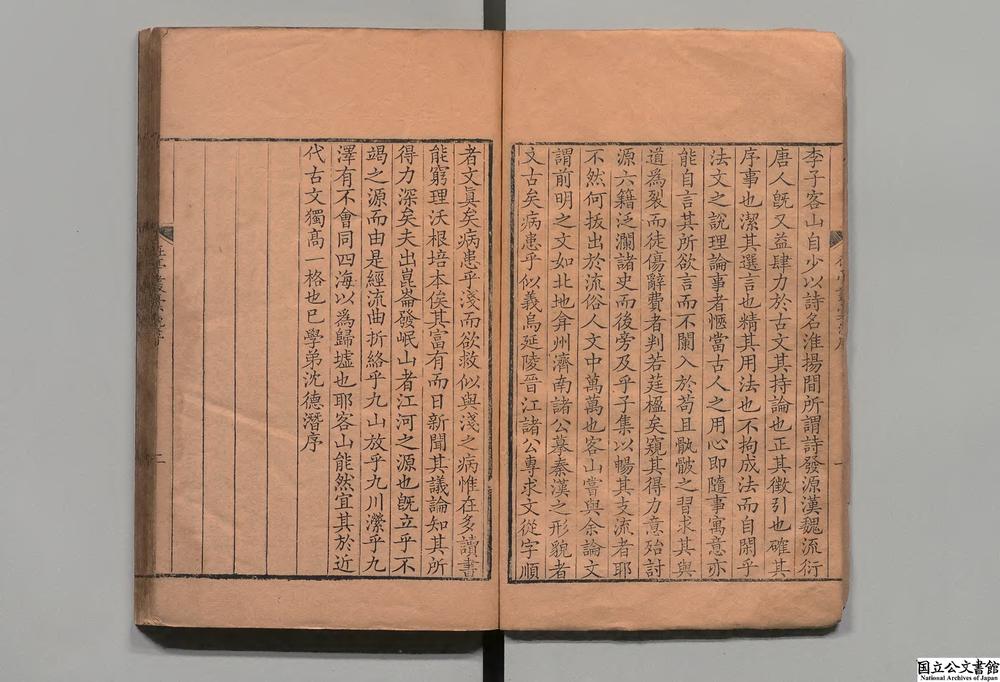 李子客山自少以詩名淮揚間所謂詩發源漢魏流衍
唐人旣又益肆力於古文其持論也正其徵引也確其
序事也潔其選言也精其用法也不拘成法而自閑乎
法文之說理論事者愜當古人之用心即隨事寓意亦
能自言其所欲言而不闌入於苟且骫骳之習求其與
道爲裂而徒傷辭費者判若莛楹矣窺其得力意殆討
源六籍泛瀾諸史而後旁及乎子集以暢其支流者耶
不然何拔出於流俗人文中萬萬也客山嘗與余論文
謂前明之文如北地弇州濟南諸公摹秦漢之形貌者
文古矣病患乎似義烏延陵晉江諸公專求文從字順
者文眞矣病患乎淺而欲救似與淺之病惟在多讀書
能窮理沃根培本俟其富有而日新聞其議論知其所
得力深矣夫出崑崙發岷山者江河之源也旣立乎不
竭之源而由是經流曲折絡乎九山放乎九川瀠乎九
澤有不會同四海以爲歸墟也耶客山能然宜其於近
代古文獨高一格也已學弟沈德潛序
二
国立公文書館
National Archives of Japan